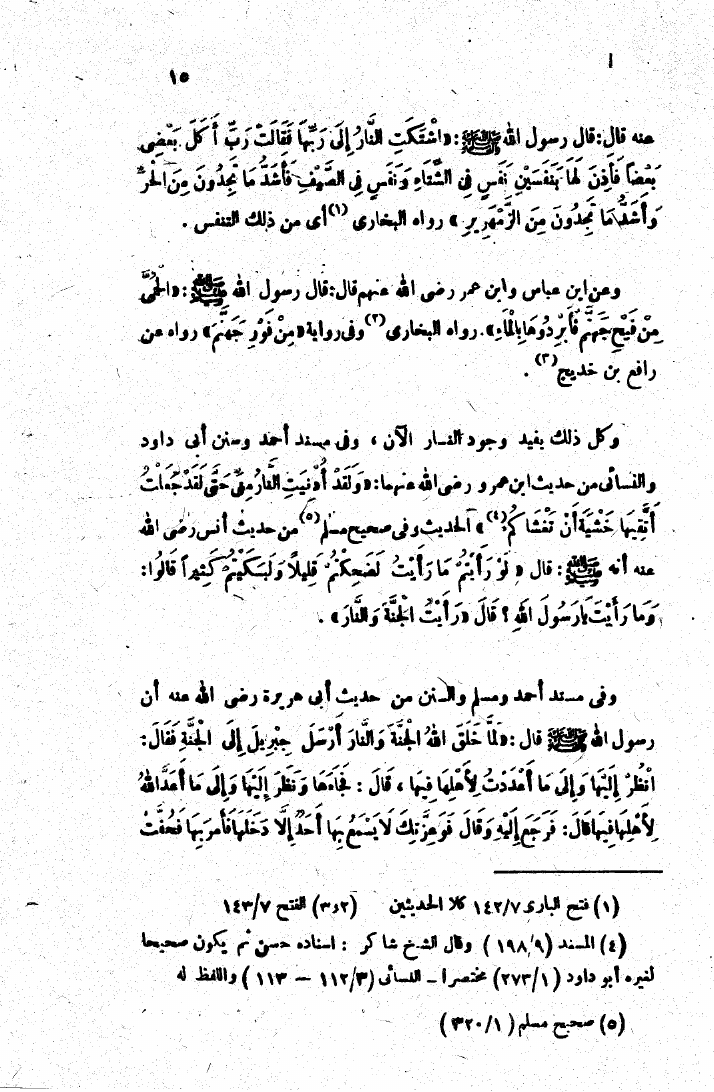 ١٥
عنه قال : قال رسول الله ﷺ : «اشْتَكَتِ النَّارُ إِلَى رَبِّهَا فَقَالَتْ رَبِّ أَكَلَ بَعْضِى
بَعْضاً فَأَذِنَ لَهَا بِنَفَسَيْنِ نَفَسٍ فِى الشِّتَاءِ وَنَفَسٍ فِى الصَّيْفِ فَأَشَدُّ مَا تَجِدُونَ مِنَ الْحَرِّ
وَأَشَدُّ مَا تَجِدُونَ مِنَ الزَّمْهَرِيرِ » رواه البخارى (١) أى من ذلك التنفس .
وعن ابن عباس وابن عمر رضى الله عنهم قال : قال رسول الله ﷺ : «الْحُمَّى
مِنْ فَيْحِ جَهَنَّمَ فَأَبْرِدُوهَا بِالْمَاءِ» . رواه البخارى (٢) وفى رواية «مِنْ فَوْرِ جَهَنَّمَ» رواه عن
رافع بن خديج (٣) .
وكل ذلك يفيد وجود النار الآن ، وفى مسند أحمد وسنن أبى داود
والنسائى من حديث ابن عمرو رضى الله عنهما : «وَلَقَدْ أُدْنِيَتِ النَّارُ مِنِّى حَتَّى لَقَدْ جَعَلْتُ
أَتَّقِيهَا خَشْيَةَ أَنْ تَغْشَاكُمْ (٤) » الحديث وفى صحيح مسلم (٥) من حديث أنس رضى الله
عنه أنه ﷺ : قال « لَوْ رَأَيْتُمْ مَا رَأَيْتُ لَضَحِكْتُمْ قَلِيلاً وَلَبَكَيْتُمْ كَثِيراً قَالُوا :
وَمَا رَأَيْتَ يَارَسُولَ اللهِ ؟ قَالَ «رَأَيْتُ الْجَنَّةَ وَالنَّارَ» .
وفى مسند أحمد ومسلم والسنن من حديث أبى هريرة رضى الله عنه أن
رسول الله ﷺ قال : «لَمَّا خَلَقَ اللهُ الْجَنَّةَ وَالنَّارَ أَرْسَلَ جِبْرِيلَ إِلَى الْجَنَّةِ فَقَالَ :
انْظُرْ إِلَيْهَا وَإِلَى مَا أَعْدَدْتُ لِأَهْلِهَا فِيهَا ، قَالَ : فَجَاءَهَا وَنَظَرَ إِلَيْهَا وَإِلَى مَا أَعَدَّ اللهُ
لِأَهْلِهَا فِيهَا قَالَ : فَرَجَعَ إِلَيْهِ وَقَالَ فَوَعِزَّتِكَ لَا يَسْمَعُ بِهَا أَحَدٌ إِلَّا دَخَلَهَا فَأَمَرَ بِهَا فَحُفَّتْ
(١) فتح البارى ١٤٢/٧ كلا الحديثين (٢و٣) الفتح ١٤٣/٧
(٤) المسند (١٩٨/٩) وقال الشيخ شاكر : اسناده حسن ثم يكون صحيحا
لغيره أبو داود (٢٧٣/١) مختصرا – النسائى (١١٢/٣ – ١١٣) واللفظ له
(٥) صحيح مسلم (٣٢٠/١)